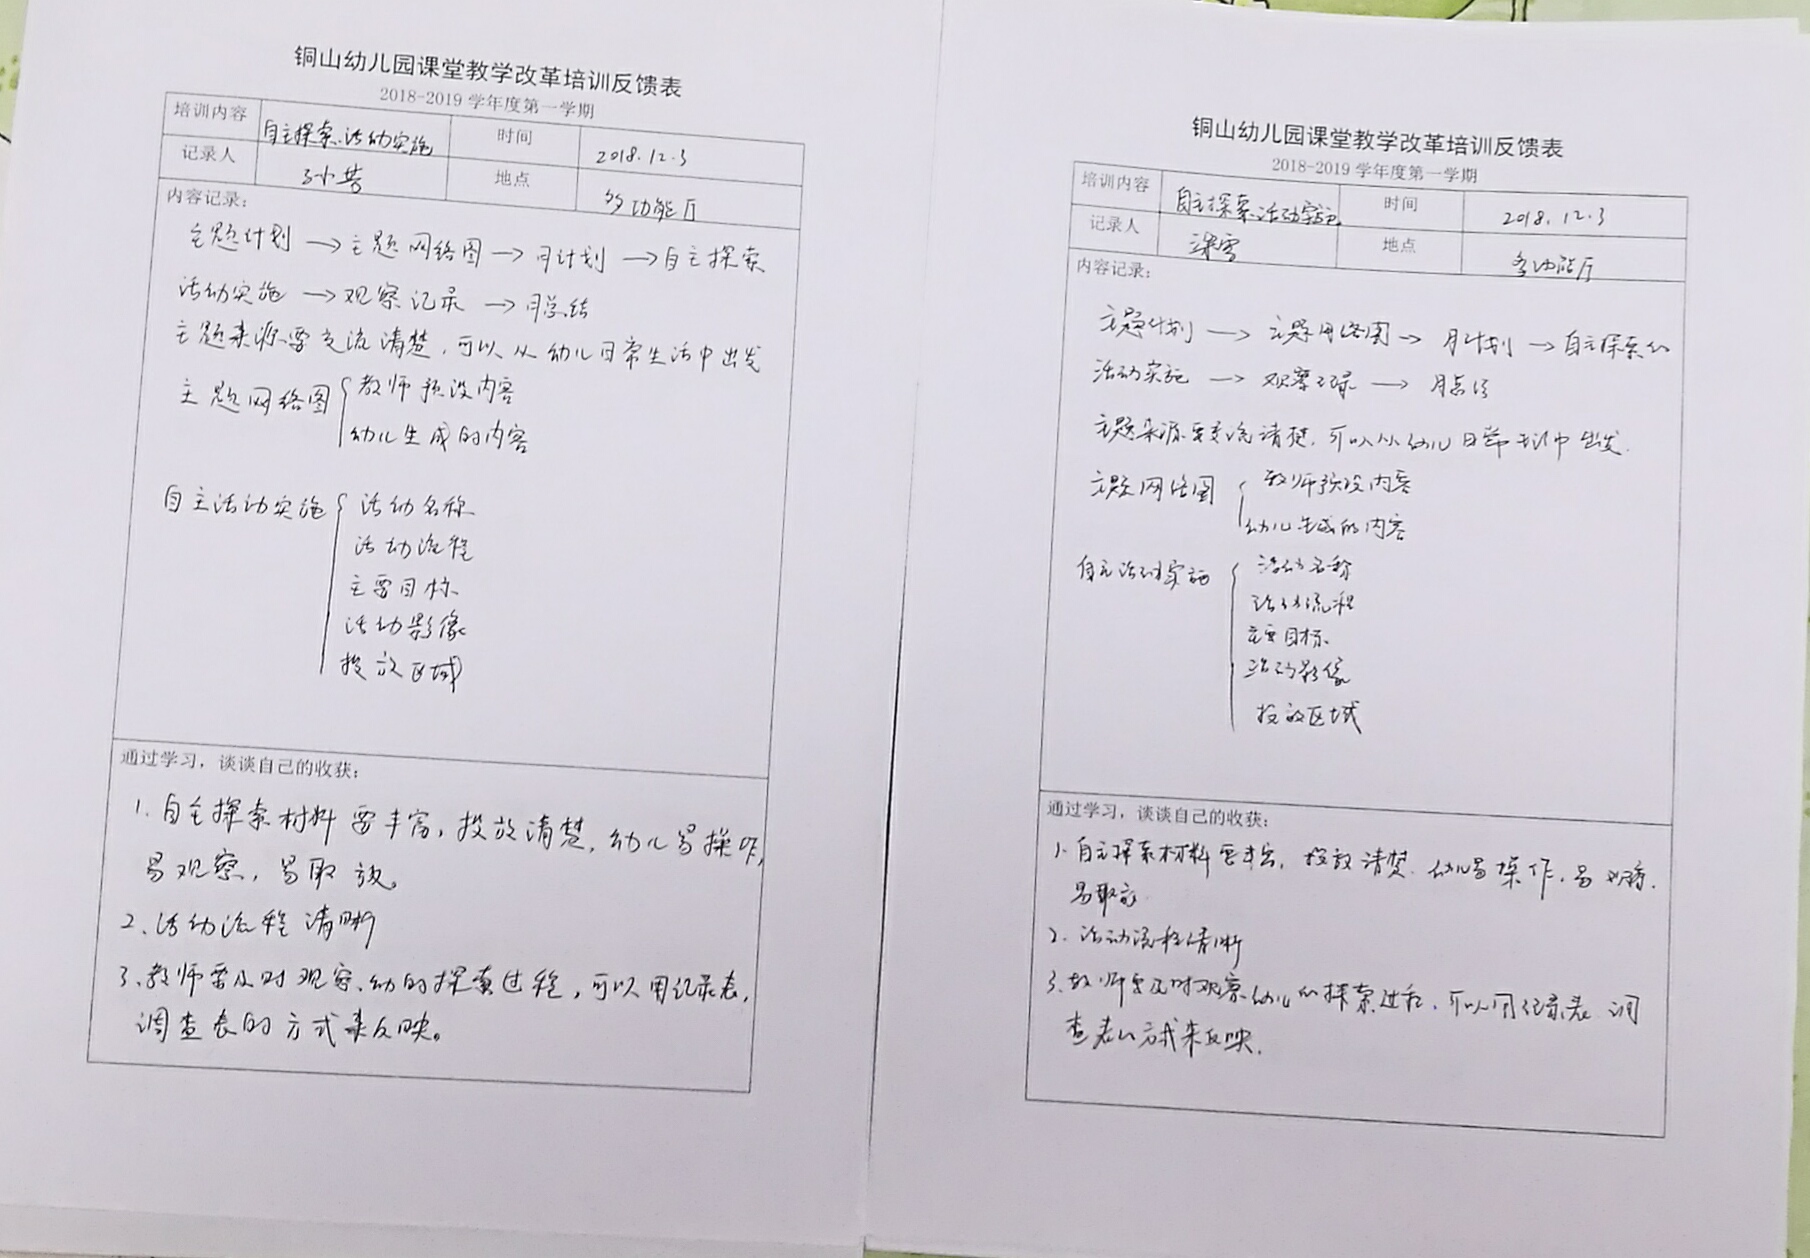 铜山幼儿园课堂教学改革培训反馈表
2018-2019 学年度第一学期
培训内容 自主探索、活动实施 时间 2018.12.3
记录人 孙小芸 地点 多功能厅
内容记录:
主题计划 → 主题网络图 → 月计划 → 自主探索
活动实施 → 观察记录 → 月总结
主题来源要交流清楚,可以从幼儿日常生活中出发
主题网络图 { 教师预设内容
幼儿生成的内容
自主活动实施 { 活动名称
活动流程
主要目标
活动影像
投放区域
通过学习,谈谈自己的收获:
1. 自主探索材料要丰富,投放清楚,幼儿易操作,
易观察,易取放。
2、活动流程清晰
3、教师要及时观察、幼的探索过程,可以用记录表,
调查表的方式来反映。
铜山幼儿园课堂教学改革培训反馈表
2018-2019 学年度第一学期
培训内容 自主探索、活动实施 时间 2018.12.3
记录人 梁雪 地点 多功能厅
内容记录:
主题计划 → 主题网络图 → 月计划 → 自主探索的
活动实施 → 观察记录 → 月总结
主题来源要交流清楚,可以从幼儿日常生活中出发.
主题网络图 { 教师预设内容
幼儿生成的内容
自主活动实施 { 活动名称
活动流程
主要目标
活动影像
投放区域
通过学习,谈谈自己的收获:
1. 自主探索材料要丰富,投放清楚.幼儿易操作,易观察.
易取放
2. 活动流程清晰
3. 教师要及时观察幼儿的探索过程,可以用记录表、调
查表的方式来反映.